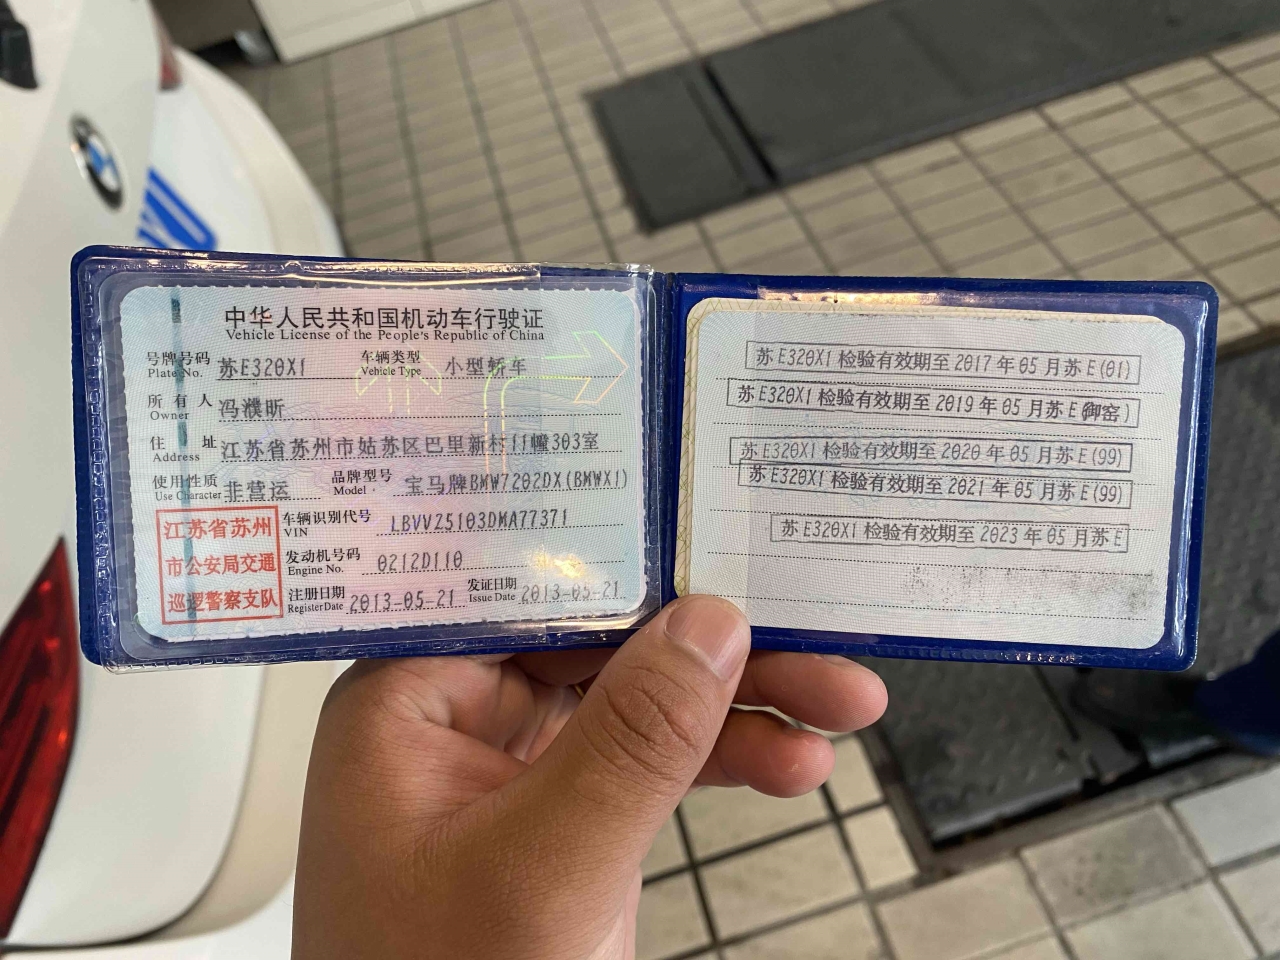 中华人民共和国机动车行驶证
Vehicle License of the People's Republic of China
号牌号码 苏E320X1 车辆类型 小型轿车
Plate No. Vehicle Type
所有人 冯濮昕
Owner
住址 江苏省苏州市姑苏区巴里新村11幢303室
Address
使用性质 非营运 品牌型号 宝马牌BMW7202DX(BMWX1)
Use Character Model
江苏省苏州
市公安局交通
巡逻警察支队
车辆识别代号 LBVVZ5103DMA77371
VIN
发动机号码 0212D110
Engine No.
注册日期 2013-05-21 发证日期 2013-05-21
Register Date Issue Date
苏E320X1 检验有效期至 2017 年 05 月苏 E(01)
苏E320X1 检验有效期至 2019 年 05 月苏 E(御窑)
苏E320X1 检验有效期至 2020 年 05 月苏 E(99)
苏E320X1 检验有效期至 2021 年 05 月苏 E(99)
苏E320X1 检验有效期至 2023 年 05 月苏 E